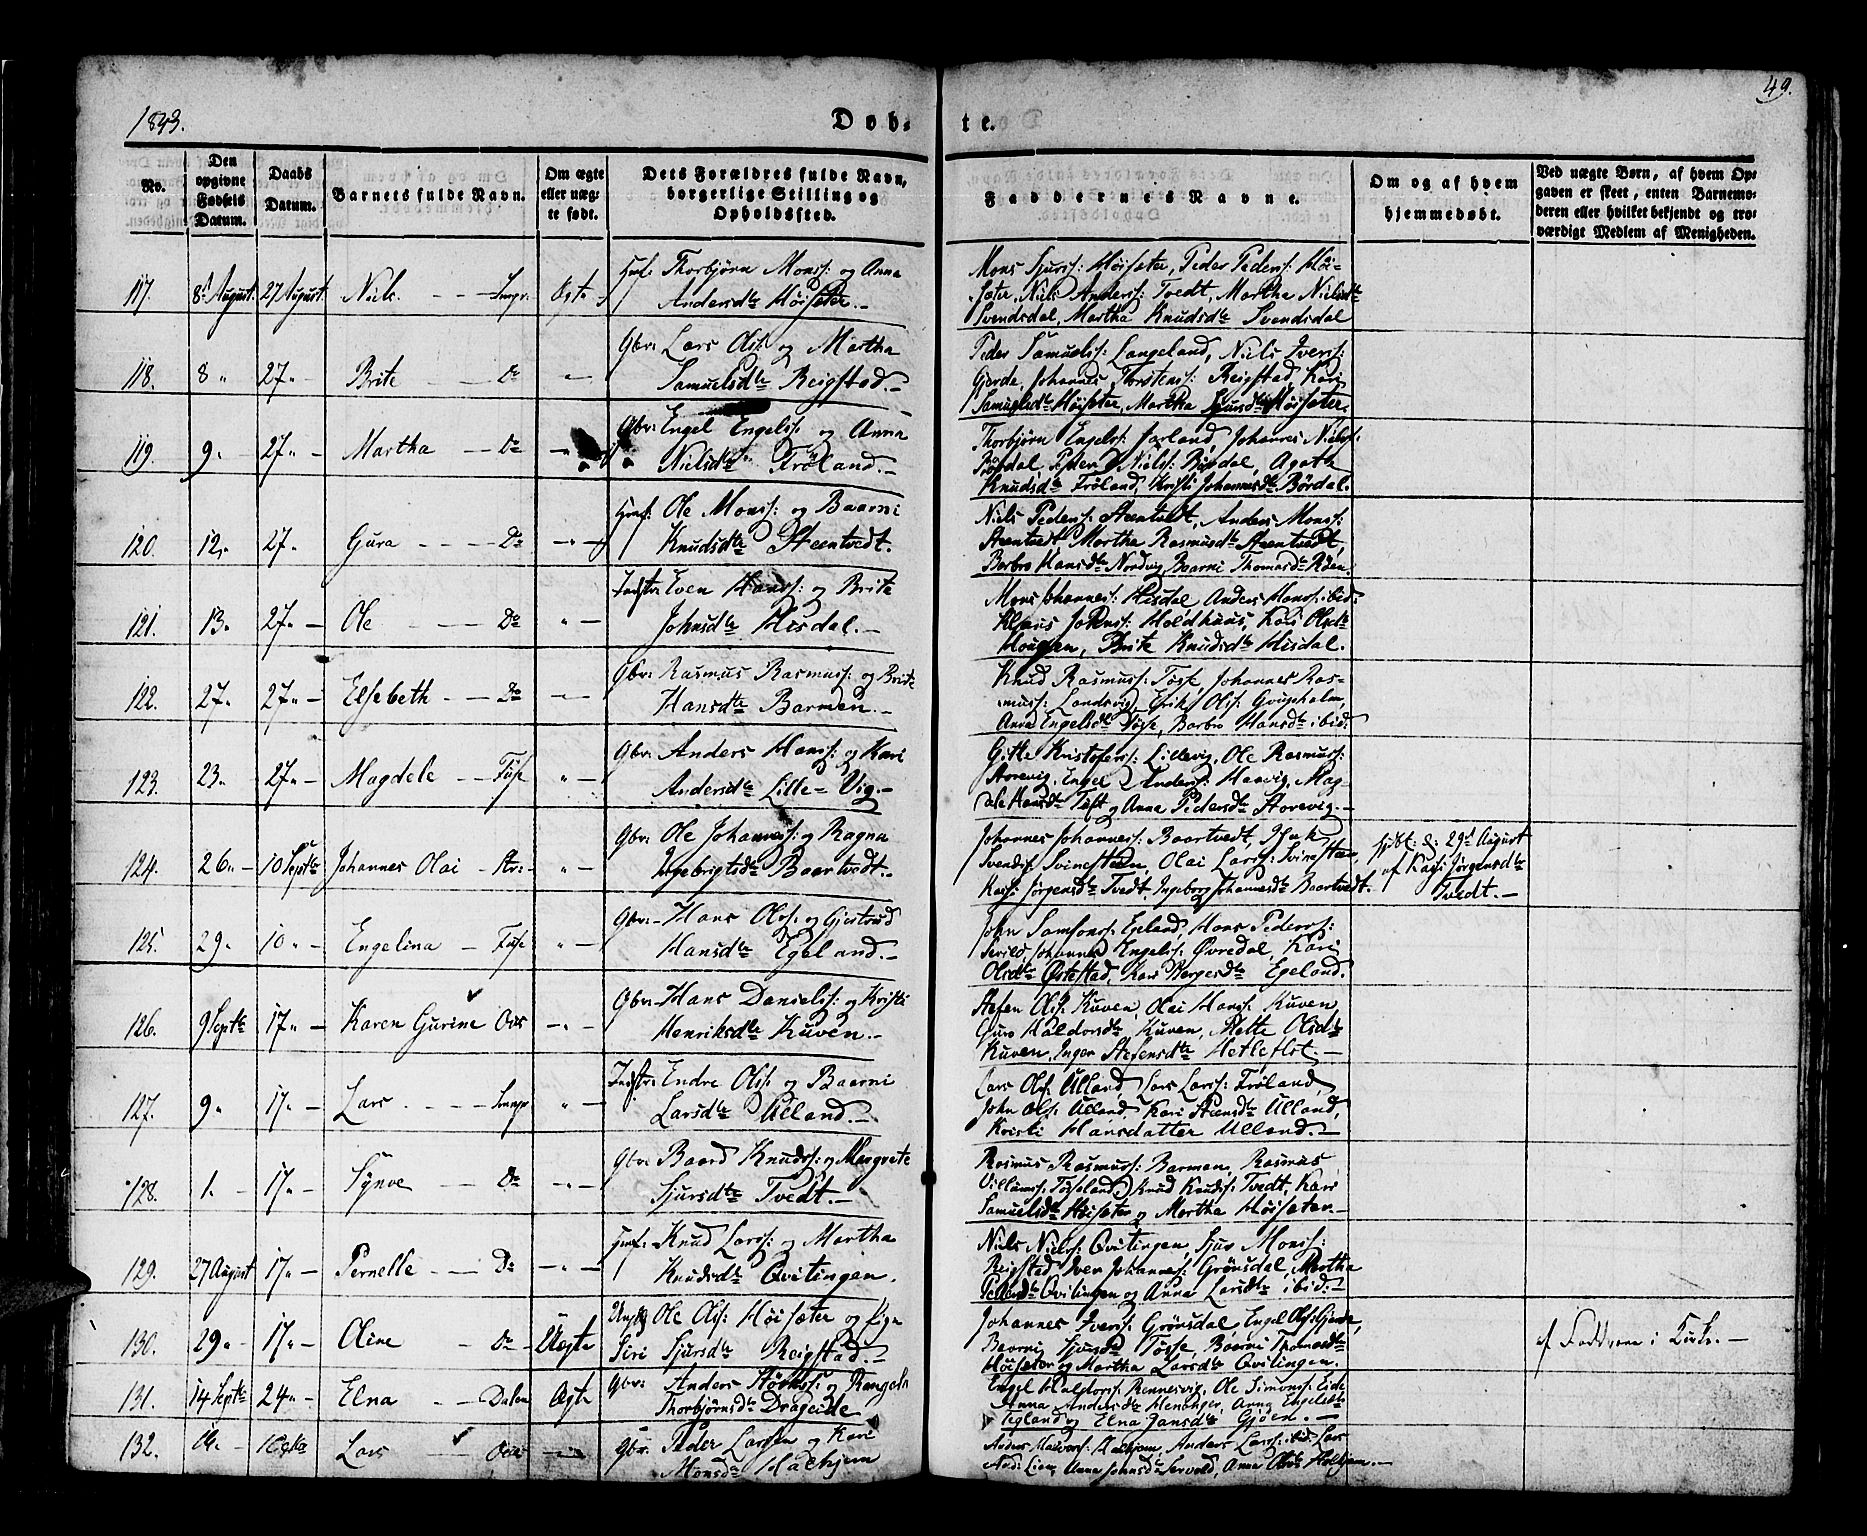 1843.
Døb-
te.
49.
No.
Den
opgivne
Fødsels
Datum.
Daabs
Datum.
Barnets fulde Navn.
Om ægte
eller uæg-
te født.
Dets Forældres fulde Navn,
borgerlige Stilling og
Opholdssted.
Faddernes Navne.
Om og af hvem
hjemmedøbt.
Ved uægte Børn, af hvem Op-
gaven er skeet, enten Barnemo-
deren eller hvilket bekjendt og tro-
værdigt Medlem af Menigheden.
117. 8d August. 27 August. Niels. Ægte
Huf: Thorbjørn Monss: og Anna
Andersdtr Høisæter.
Mons Sjurss: Høisæter, Peder Pederss: Høi-
sæter, Niels Anderss: Tvedt, Martha Nielsdtr
Svendsdal, Martha Knudsdtr Svendsdal
118. 8 " 27 " Brite Do "
Gbr: Lars Olss: og Martha
Samuelsdtr Reigstad.
Peder Samuelss: Langeland, Niels Iverss:
Gjerde, Johannes Thorstenss: Reigstad, Kari
Samuelsdtr Høisæter, Martha Sjursdtr Høisæter.
119. 9 " 27 " Martha Do "
Gbr: Engel Engelss: og Anna
Nielsdtr Frøland.
Thorbjørn Engelss: Jarland, Johannes Nielss:
Børdal, Peder Nielss: Børdal, Agate
Knudsdtr Frøland, Kristi Johannesdtr Børdal.
120. 12 " 27 " Gura Do "
Huf: Ole Monss: og Baarni
Knudsdtr Steentvedt.
Niels Pederss: Steentvedt, Anders Monss:
Steentvedt, Martha Rasmusdtr Steentvedt,
Barbro Hansdtr Nordvig, Baarni Thomasdtr Røen.
121. 13 " 27 " Ole Do "
Indstr: Even Hanss: og Brite
Johnsdtr Hisdal.
Mons Johanness: Hisdal, Anders Monss: ibid:
Klaus Johnss: Holdhuus, Kari Olsdtr
Hougen, Brite Knudsdtr Hisdal.
122. 27 " 27 " Elsebeth Do "
Gbr: Rasmus Rasmuss: og Brite
Hansdtr Barmen.
Knud Rasmuss: Tøsse, Johannes Ras-
muss: Landsvig, Erik Olss:
Anna Engelsdtr Tøsse, Barbro Hansdtr ibid:
123. 23 " 27 " Magdele Fuse "
Gbr: Anders Hanss: og Kari
Andersdtr Lille-Vig.
Gitle Kristoferss: Lillevig, Ole Rasmuss:
Storevig, Engel Anderss: Haavig, Mag-
dele Hansdtr Tuft og Anna Pedersdtr Storevig.
124. 26 " 10 Septbr Johannes Olai Str. "
Gbr: Ole Johanness: og Ragna
Ingebrigtsdtr Baartvedt.
Johannes Johanness: Baartvedt, Isak
Svendss: Svinesteen, Olai Larss: Svinesteen
Kari Jørgensdtr Tvedt, Ingeborg Johannesdtr Baartvedt.
hjdbt: d: 29d August
af Kari Jørgensdtr
Tvedt.
125. 29 " 10 " Engelina Fuse "
Gbr: Hans Olss: og Gjertrud
Hansdtr Egeland.
John Samsonss: Egeland, Hans Pederss:
Johannes Engelss: Øvredal, Kari
Olsdtr Østestad, Kari Børgesdtr Egeland.
126. 9 Septbr 17 " Karen Gurine Oos "
Gbr: Hans Danielss: og Kristi
Henriksdtr Kuven.
Stefen Olss: Kuven, Olai Hanss: Kuven
Guro Haldorsdtr Kuven, Mette Olsdtr
Kuven, Inger Stefensdtr Hetleflot.
127. 9 " 17 " Lars "
Indstr: Endre Olss: og Baarni
Larsdtr Ulland.
Lars Olss: Ulland, Lars Larss: Frøland,
John Olss: Ulland, Kari Steensdtr Ulland,
Kristi Hansdatter Ulland.
128. 1. 17 " Synve Do "
Gbr: Baard Knudss: og Margrete
Sjursdtr Tvedt.
Rasmus Rasmuss: Barmen, Rasmus
Villumss: Tøsseland, Knud Knudss: Tvedt, Kari
Samuelsdtr Høisæter og Martha Høisæter.
129. 27 August 17 " Pernelle Do "
Huf: Knud Larss: og Martha
Knudsdtr Qvitingen.
Niels Nielss: Qvitingen, Sjur Monss:
Reigstad, Iver Johanness: Grønsdal, Martha
Pedersdtr Qvitingen og Anna Larsdtr ibid:
130. 29 " 17 " Oline Do Uægte
Ungk Ole Olss: Høisæter og Pige
Siri Sjursdtr Reigstad.
Johannes Iverss: Grønsdal, Engel Olss: Gjerde,
Baarni Sjursdtr Tøsse, Baarni Thomasdtr
Høisæter og Martha Larsdtr Qvitingen.
af Fadderne i Kirke.
131. 14 Septbr 24 " Elna Dalen Ægte
Gbr: Anders Størkss: og Rangela
Thorbjørnsdtr Drageide
Engel Haldorss: Rennesvig, Ole Simonss: Eide
Anna Andersdtr Henanger, Anna Engelsdtr
Tegland og Elna Jansdtr Gjøen.
132. Lars Oos "
Gbr: Peder Larsen og Kari
Monsdtr Halhjem
Anders Halhjem, Anders Larss: ibid: Lars
Lien, Anna Johnsdtr Sørvold, Anna Olsdtr Halhjem.